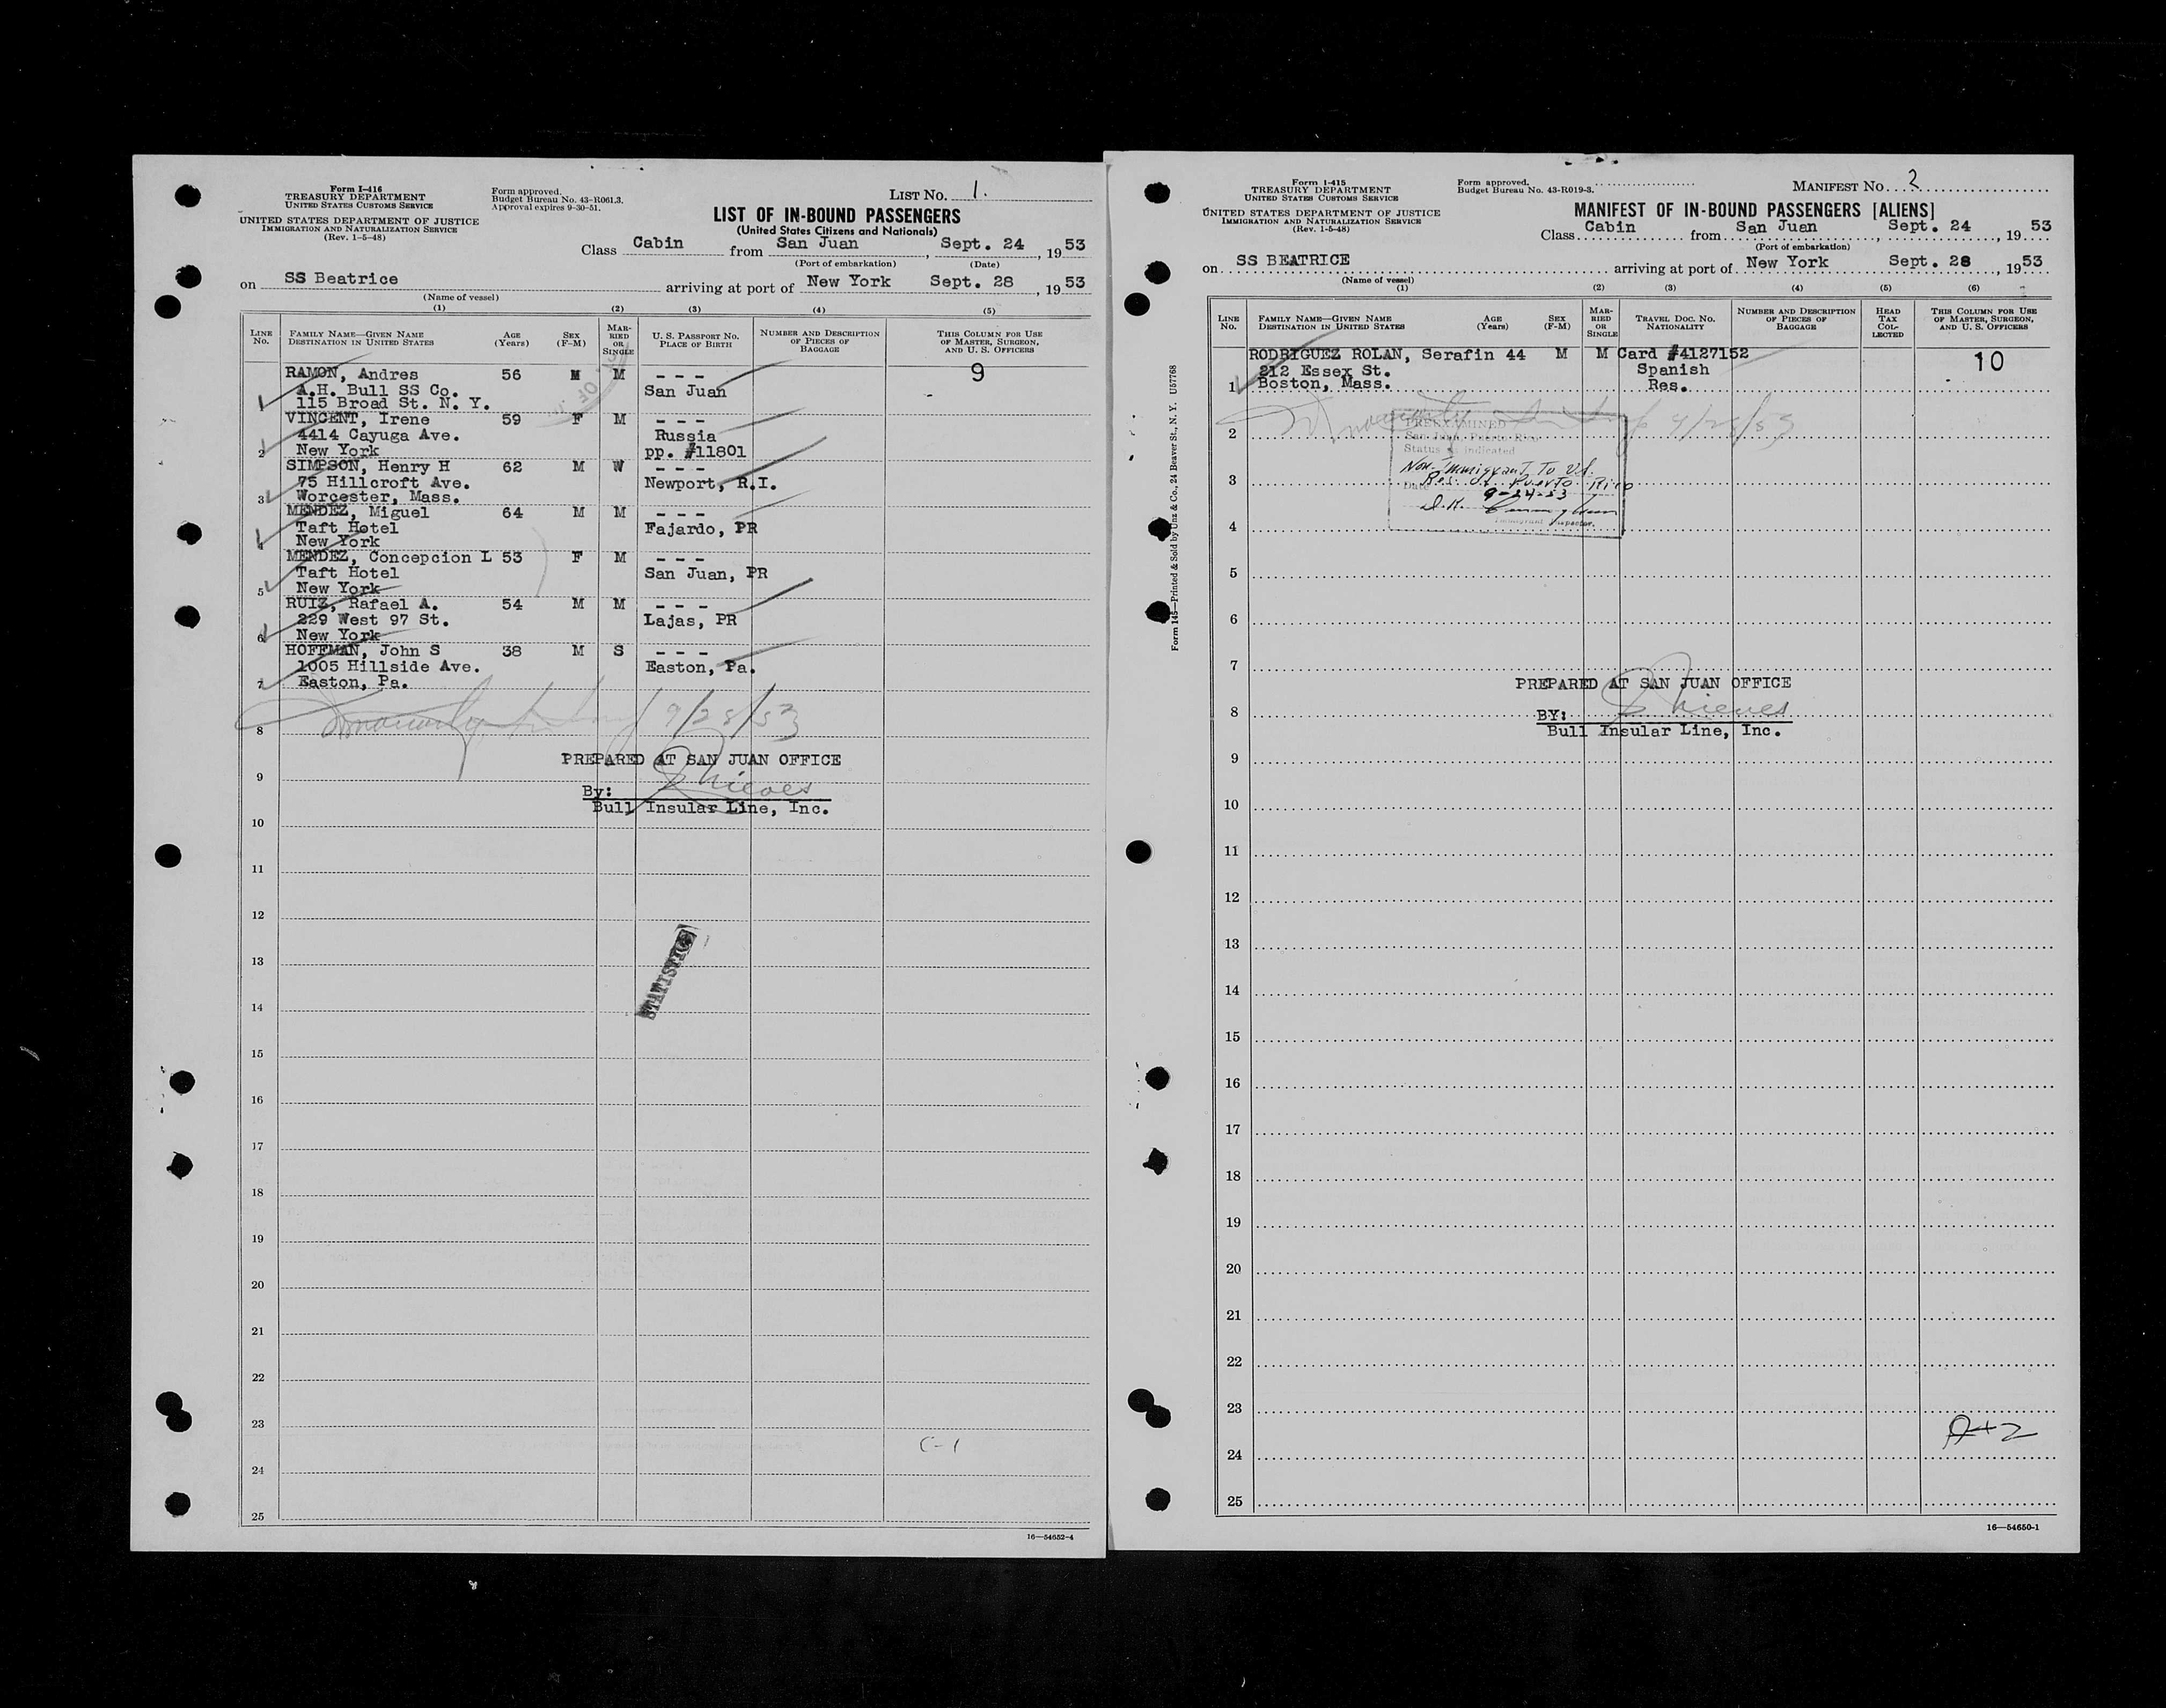 Form I-416
TREASURY DEPARTMENT
UNITED STATES CUSTOMS SERVICE
UNITED STATES DEPARTMENT OF JUSTICE
IMMIGRATION AND NATURALIZATION SERVICE
(Rev. 1-5-48)
Form approved.
Budget Bureau No. 43-R061.3.
Approval expires 9-30-51.
LIST No. 1.
LIST OF IN-BOUND PASSENGERS
(United States Citizens and Nationals)
Class Cabin from San Juan, Sept. 24, 1953
(Port of embarkation) (Date)
on SS Beatrice arriving at port of New York Sept. 28, 1953
(Name of vessel)
(1) (2) (3) (4) (5)
LINE No. FAMILY NAME—GIVEN NAME DESTINATION IN UNITED STATES AGE (Years) SEX (F-M) MARRIED OR SINGLE U. S. PASSPORT NO. PLACE OF BIRTH NUMBER AND DESCRIPTION OF PIECES OF BAGGAGE THIS COLUMN FOR USE OF MASTER, SURGEON, AND U. S. OFFICERS
RAMON, Andres 56 M M - - - 9
A.H. Bull SS Co. San Juan
1 115 Broad St. N. Y.
VINCENT, Irene 59 F M - - -
4414 Cayuga Ave. Russia
2 New York pp. #11801
SIMPSON, Henry H 62 M W - - -
75 Hillcroft Ave. Newport, R.I.
3 Worcester, Mass.
MENDEZ, Miguel 64 M M - - -
Taft Hotel Fajardo, PR
4 New York
MENDEZ, Concepcion L 53 F M - - -
Taft Hotel San Juan, PR
5 New York
RUIZ, Rafael A. 54 M M - - -
229 West 97 St. Lajas, PR
6 New York
HOFFMAN, John S 38 M S - - -
1005 Hillside Ave. Easton, Pa.
7 Easton, Pa.
9/28/53
8
PREPARED AT SAN JUAN OFFICE
9
By: Nieves
Bull Insular Line, Inc.
10
11
12
13
STATISTICS
14
15
16
17
18
19
20
21
22
23
C-1
24
25
16—54652-4
Form I-415
TREASURY DEPARTMENT
UNITED STATES CUSTOMS SERVICE
UNITED STATES DEPARTMENT OF JUSTICE
IMMIGRATION AND NATURALIZATION SERVICE
(Rev. 1-5-48)
Form approved.
Budget Bureau No. 43-R019-3.
MANIFEST No. 2
MANIFEST OF IN-BOUND PASSENGERS [ALIENS]
Class Cabin from San Juan, Sept. 24, 1953
(Port of embarkation)
on SS BEATRICE arriving at port of New York Sept. 28, 1953
(Name of vessel)
(1) (2) (3) (4) (5) (6)
LINE No. FAMILY NAME—GIVEN NAME DESTINATION IN UNITED STATES AGE (Years) SEX (F-M) MARRIED OR SINGLE TRAVEL DOC. NO. NATIONALITY NUMBER AND DESCRIPTION OF PIECES OF BAGGAGE HEAD TAX COLLECTED THIS COLUMN FOR USE OF MASTER, SURGEON, AND U. S. OFFICERS
RODRIGUEZ ROLAN, Serafin 44 M M Card #4127152 10
212 Essex St. Spanish
1 Boston, Mass. Res.
9/28/53
PREEXAMINED
2
San Juan, Puerto Rico
Status as indicated
Non-Immigrant To U.S.
3
Res. of Puerto Rico
Date 9-24-53
D.K. Cunningham
Immigrant Inspector.
4
5
6
7
PREPARED AT SAN JUAN OFFICE
8
BY: Nieves
Bull Insular Line, Inc.
9
10
11
12
13
14
15
16
17
18
19
20
21
22
23
24
25
16—54650-1
Form 145—Printed & Sold by Unz & Co., 24 Beaver St., N. Y. U57768